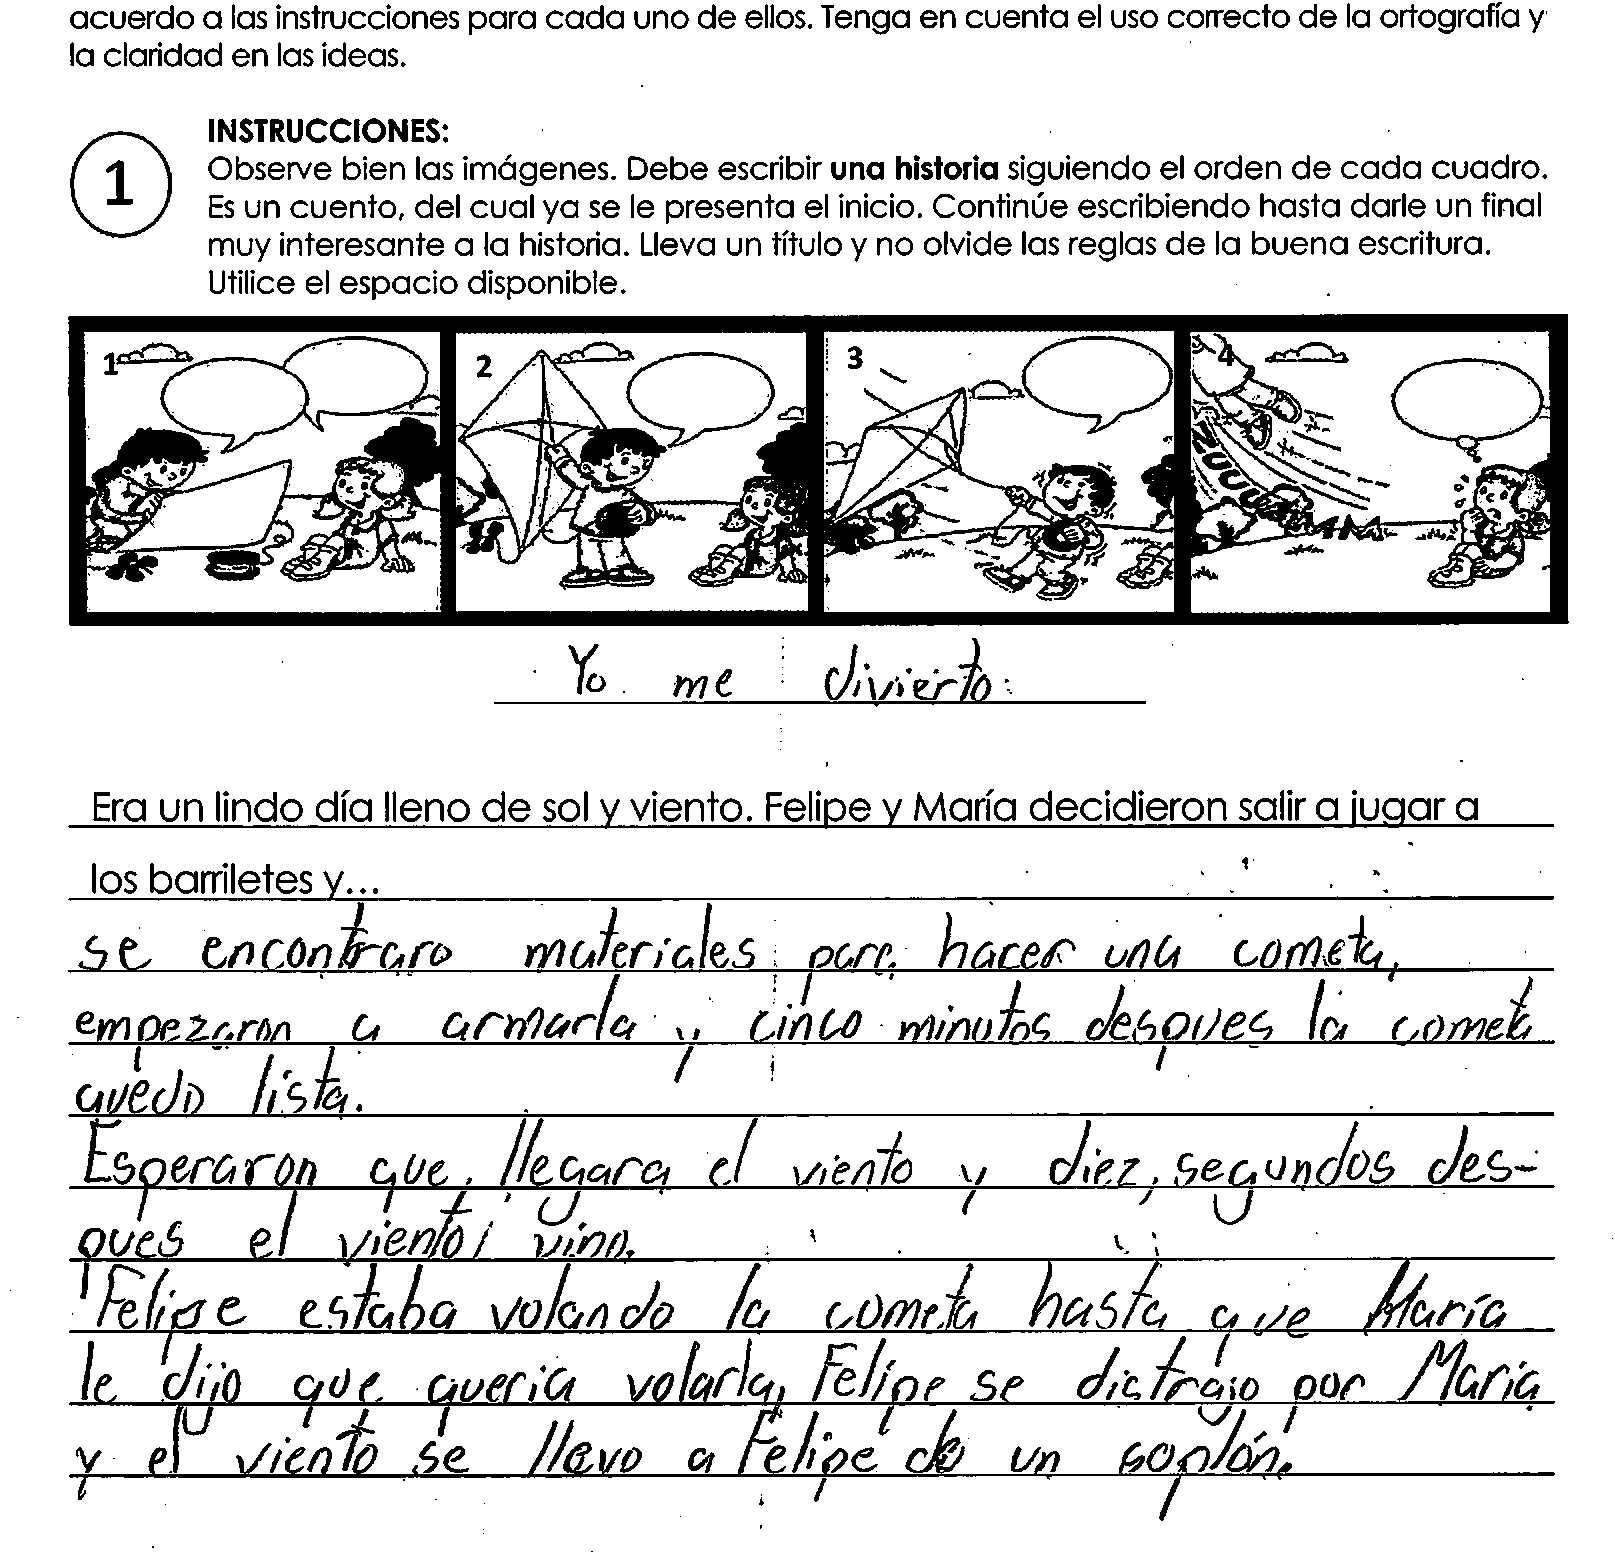 acuerdo a las instrucciones para cada uno de ellos. Tenga en cuenta el uso correcto de la ortografía y
la claridad en las ideas.
1
INSTRUCCIONES:
Observe bien las imágenes. Debe escribir una historia siguiendo el orden de cada cuadro.
Es un cuento, del cual ya se le presenta el inicio. Continúe escribiendo hasta darle un final
muy interesante a la historia. Lleva un título y no olvide las reglas de la buena escritura.
Utilice el espacio disponible.
1 2 3 4
ZUUUUMMM
Yo me divierto.
Era un lindo día lleno de sol y viento. Felipe y María decidieron salir a jugar a
los barriletes y...
se encontraro materiales para hacer una cometa,
empezaron a armarla y cinco minutos despues la cometa
quedo lista.
Esperaron que llegara el viento y diez, segundos des-
pues el viento vino.
Felipe estaba volando la cometa hasta que María
le dijo que queria volarla, Felipe se distrajo por María
y el viento se llevo a Felipe de un soplón.